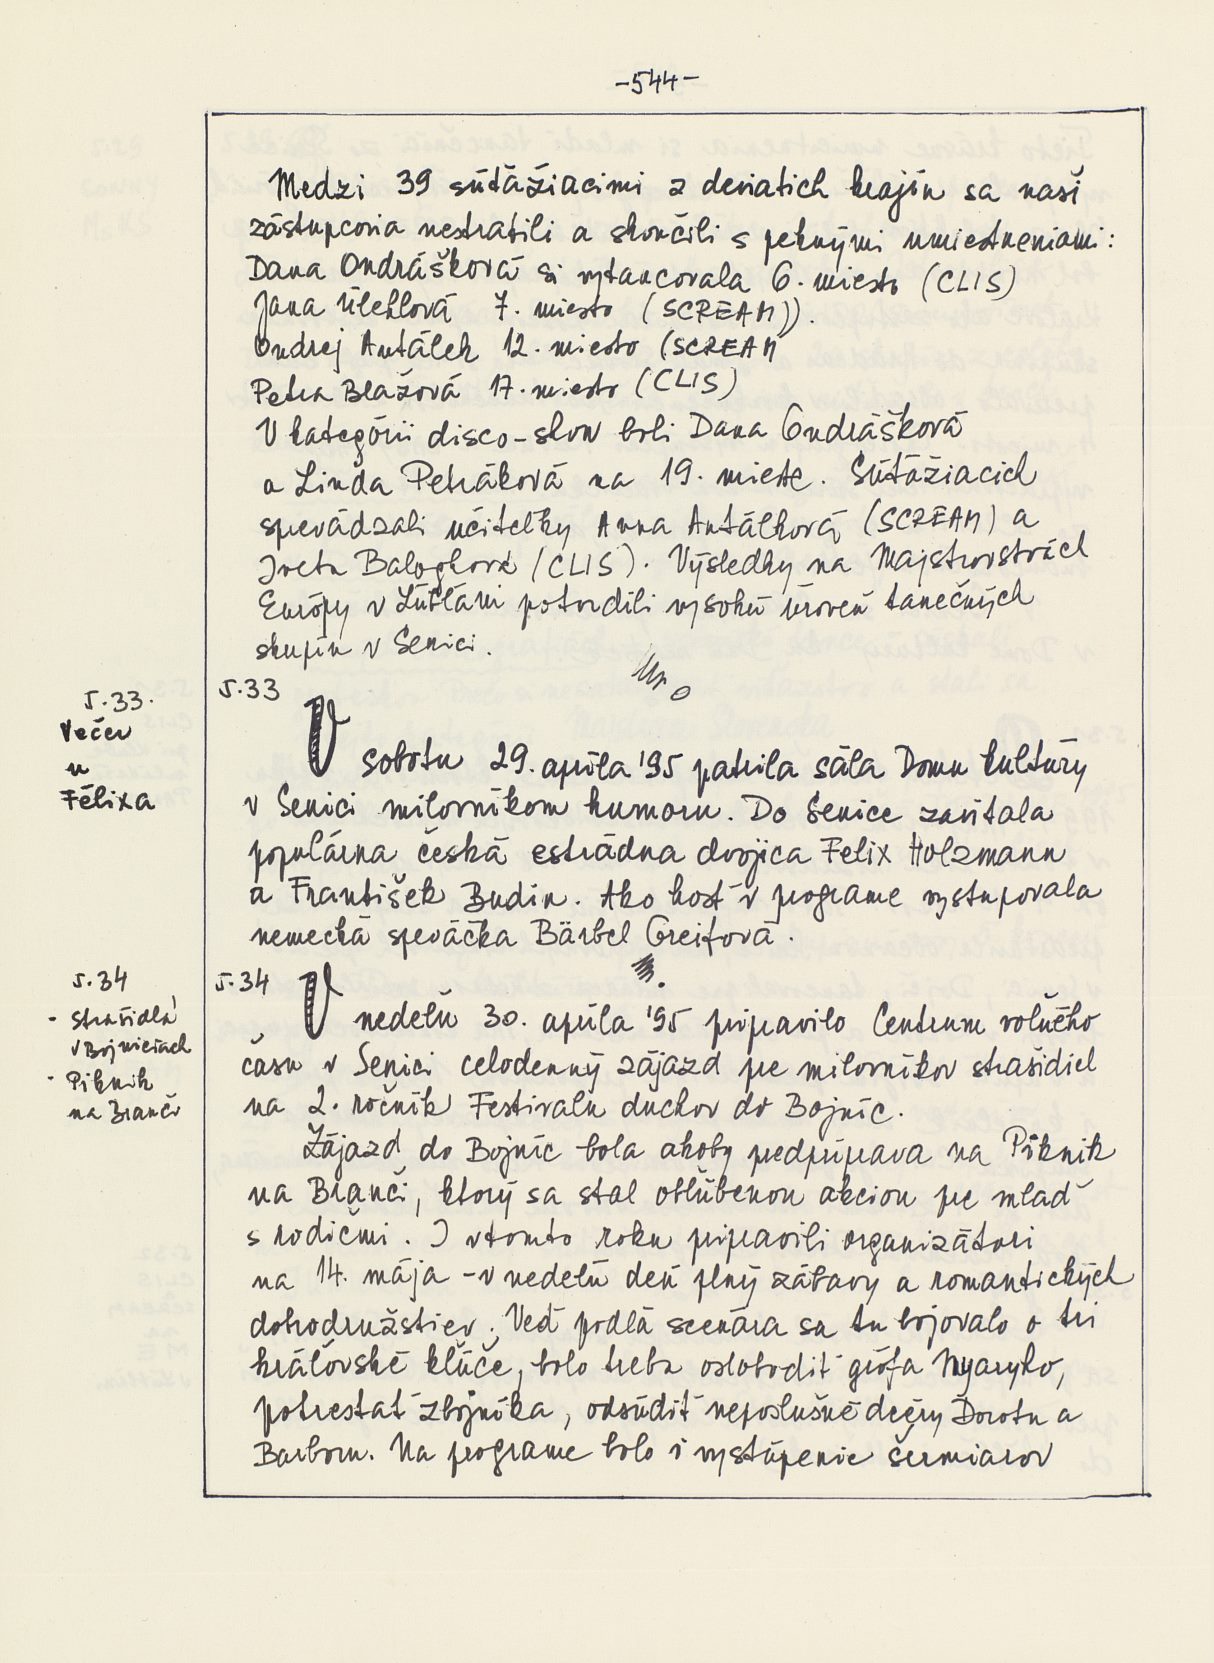 -544-
Medzi 39 súťažiacimi z deviatich krajín sa naši
zástupcovia nestratili a skončili s peknými umiestneniami:
Dana Ondrášková si vytancovala 6. miesto (CLIS)
Jana Úlehlová 7. miesto (SCREAM)).
Ondrej Antálek 12. miesto (SCREAM
Petra Blažová 17. miesto (CLIS)
V kategórii disco-show boli Dana Ondrášková
a Linda Petráková na 19. mieste. Súťažiacich
sprevádzali učiteľky Anna Antálková (SCREAM) a
Iveta Baloghová (CLIS). Výsledky na Majstrovstvách
Európy v Ľubľani potvrdili vysokú úroveň tanečných
skupín v Senici.
5.33.
Večer
u
Félixa
5.33
V sobotu 29. apríla '95 patrila sála Domu kultúry
v Senici milovníkom humoru. Do Senice zavítala
populárna česká estrádna dvojica Felix Holzmann
a František Budín. Ako hosť v programe vystupovala
nemecká speváčka Bärbel Greifová.
5.34
- strašidlá
v Bojniciach
- Piknik
na Branči
5.34
V nedeľu 30. apríla '95 pripravilo Centrum voľného
času v Senici celodenný zájazd pre milovníkov strašidiel
na 2. ročník Festivalu duchov do Bojníc.
Zájazd do Bojníc bola akoby predpríprava na Piknik
na Branči, ktorý sa stal obľúbenou akciou pre mlaď
s rodičmi. I v tomto roku pripravili organizátori
na 14. mája - v nedeľu deň plný zábavy a romantických
dobrodružstiev. Veď podľa scenára sa tu bojovalo o tri
kráľovské kľúče, bolo treba oslobodiť grófa Nyaryho,
potrestať zbojníka, odsúdiť neposlušné dcéry Dorotu a
Barboru. Na programe bolo i vystúpenie šermiarov